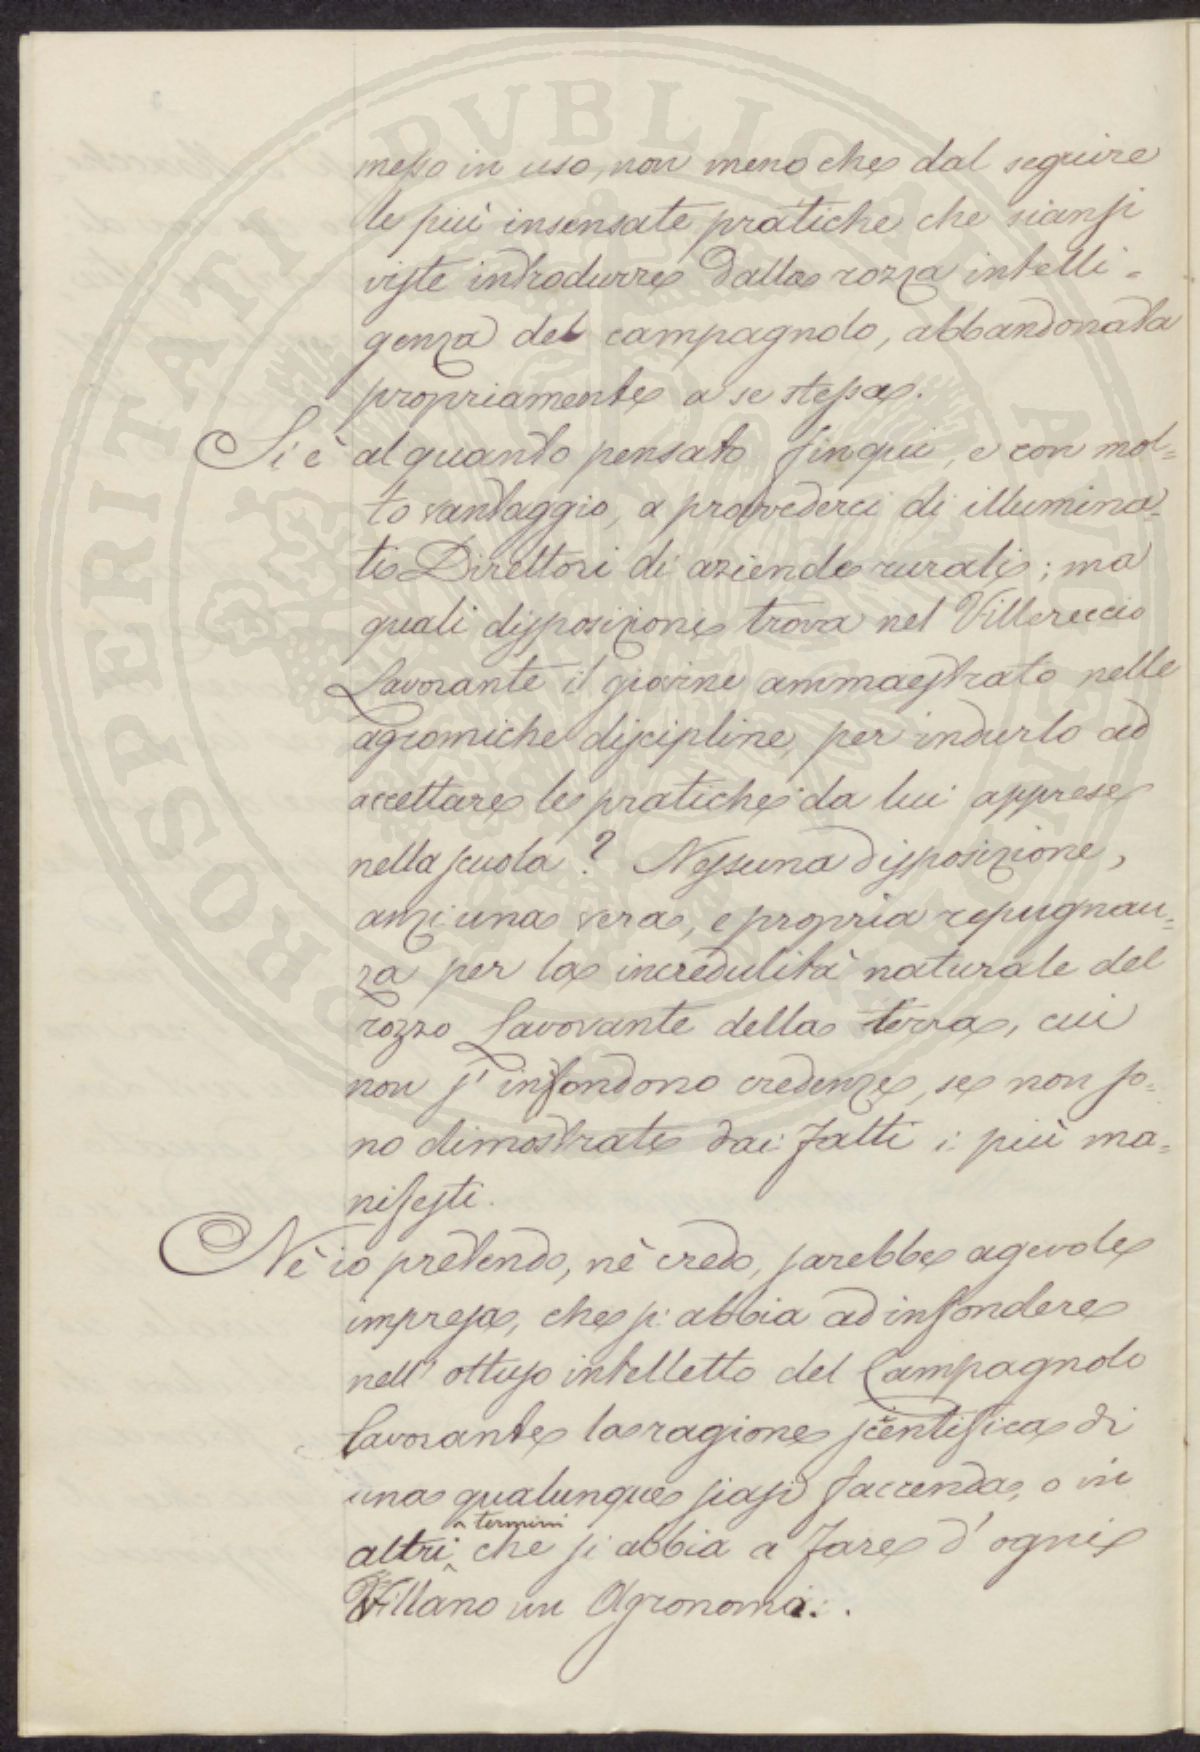 messo in uso, non meno che dal seguire
le più insensate pratiche che siansi
viste introdurre dalla rozza intelli=
genza del campagnolo, abbandonata
propriamente a se stessa.
Si è alquanto pensato finqui, e con mol=
to vantaggio, a provvederci di illumina=
ti Direttori di aziende rurali; ma
quali disposizioni trova nel Villereccio
Lavorante il giovine ammaestrato nelle
agromiche discipline, per indurlo ad
accettare le pratiche da lui apprese
nella scuola? Nessuna disposizione,
anzi una vera, e propria repugnan=
za per la incredulità naturale del
rozzo Lavorante della terra, cui
non s'infondono credenze, se non so=
no dimostrate dai fatti i più ma=
nifesti.
Nè io pretendo, nè credo, sarebbe agevole
impresa, che si abbia ad infondere
nell'ottuso intelletto del Campagnolo
lavorante la ragione scientifica di
una qualunque siasi faccenda, o in
altri termini che si abbia a fare d'ogni
Villano un Agronomo.
PROSPERITATI PVBLICAE AVGENDAE